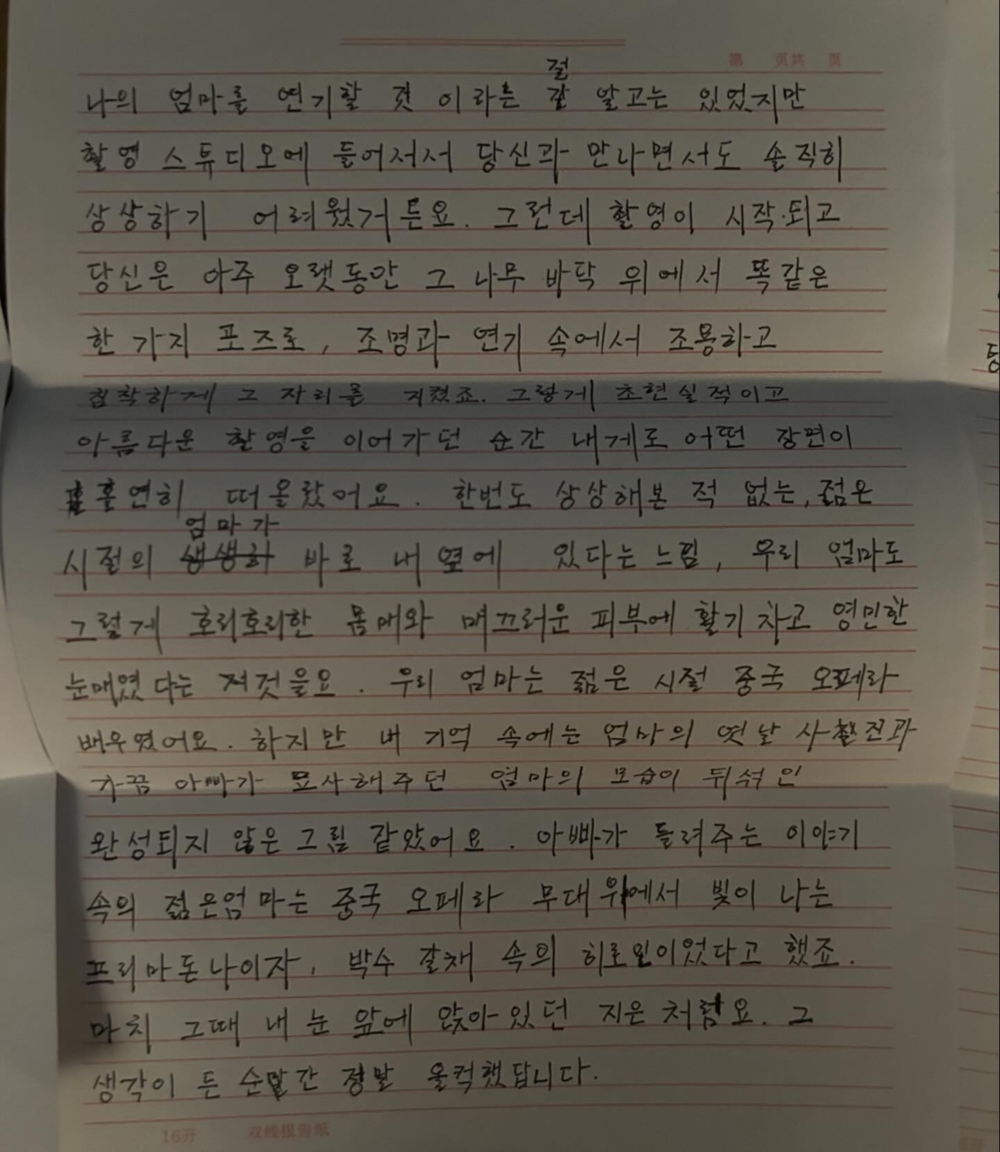 第 页共 页
절
나의 엄마를 연기할 것 이라는 걸 알고는 있었지만
촬영 스튜디오에 들어서서 당신과 만나면서도 솔직히
상상하기 어려웠거든요. 그런데 촬영이 시작되고
당신은 아주 오랫동안 그 나무 바닥 위에서 똑같은
한 가지 포즈로, 조명과 연기 속에서 조용하고
침착하게 그 자리를 지켰죠. 그렇게 초현실적이고
아름다운 촬영을 이어가던 순간 내게로 어떤 장면이
홀연히 떠올랐어요. 한번도 상상해본 적 없는, 젊은
엄마가
시절의 생생히 바로 내 옆에 있다는 느낌, 우리 엄마도
그렇게 호리호리한 몸매와 매끄러운 피부에 활기차고 영민한
눈매였다는 저것을요. 우리 엄마는 젊은 시절 중국 오페라
배우였어요. 하지만 내 기억 속에는 엄마의 옛날 사진과
가끔 아빠가 묘사해주던 엄마의 모습이 뒤섞인
완성되지 않은 그림 같았어요. 아빠가 들려주는 이야기
속의 젊은엄마는 중국 오페라 무대위에서 빛이 나는
프리마돈나이자, 박수 갈채 속의 히로인이었다고 했죠.
마치 그때 내 눈 앞에 앉아있던 지은처럼요. 그
생각이 든 순간 정말 울컥했답니다.
16开 双线报告纸